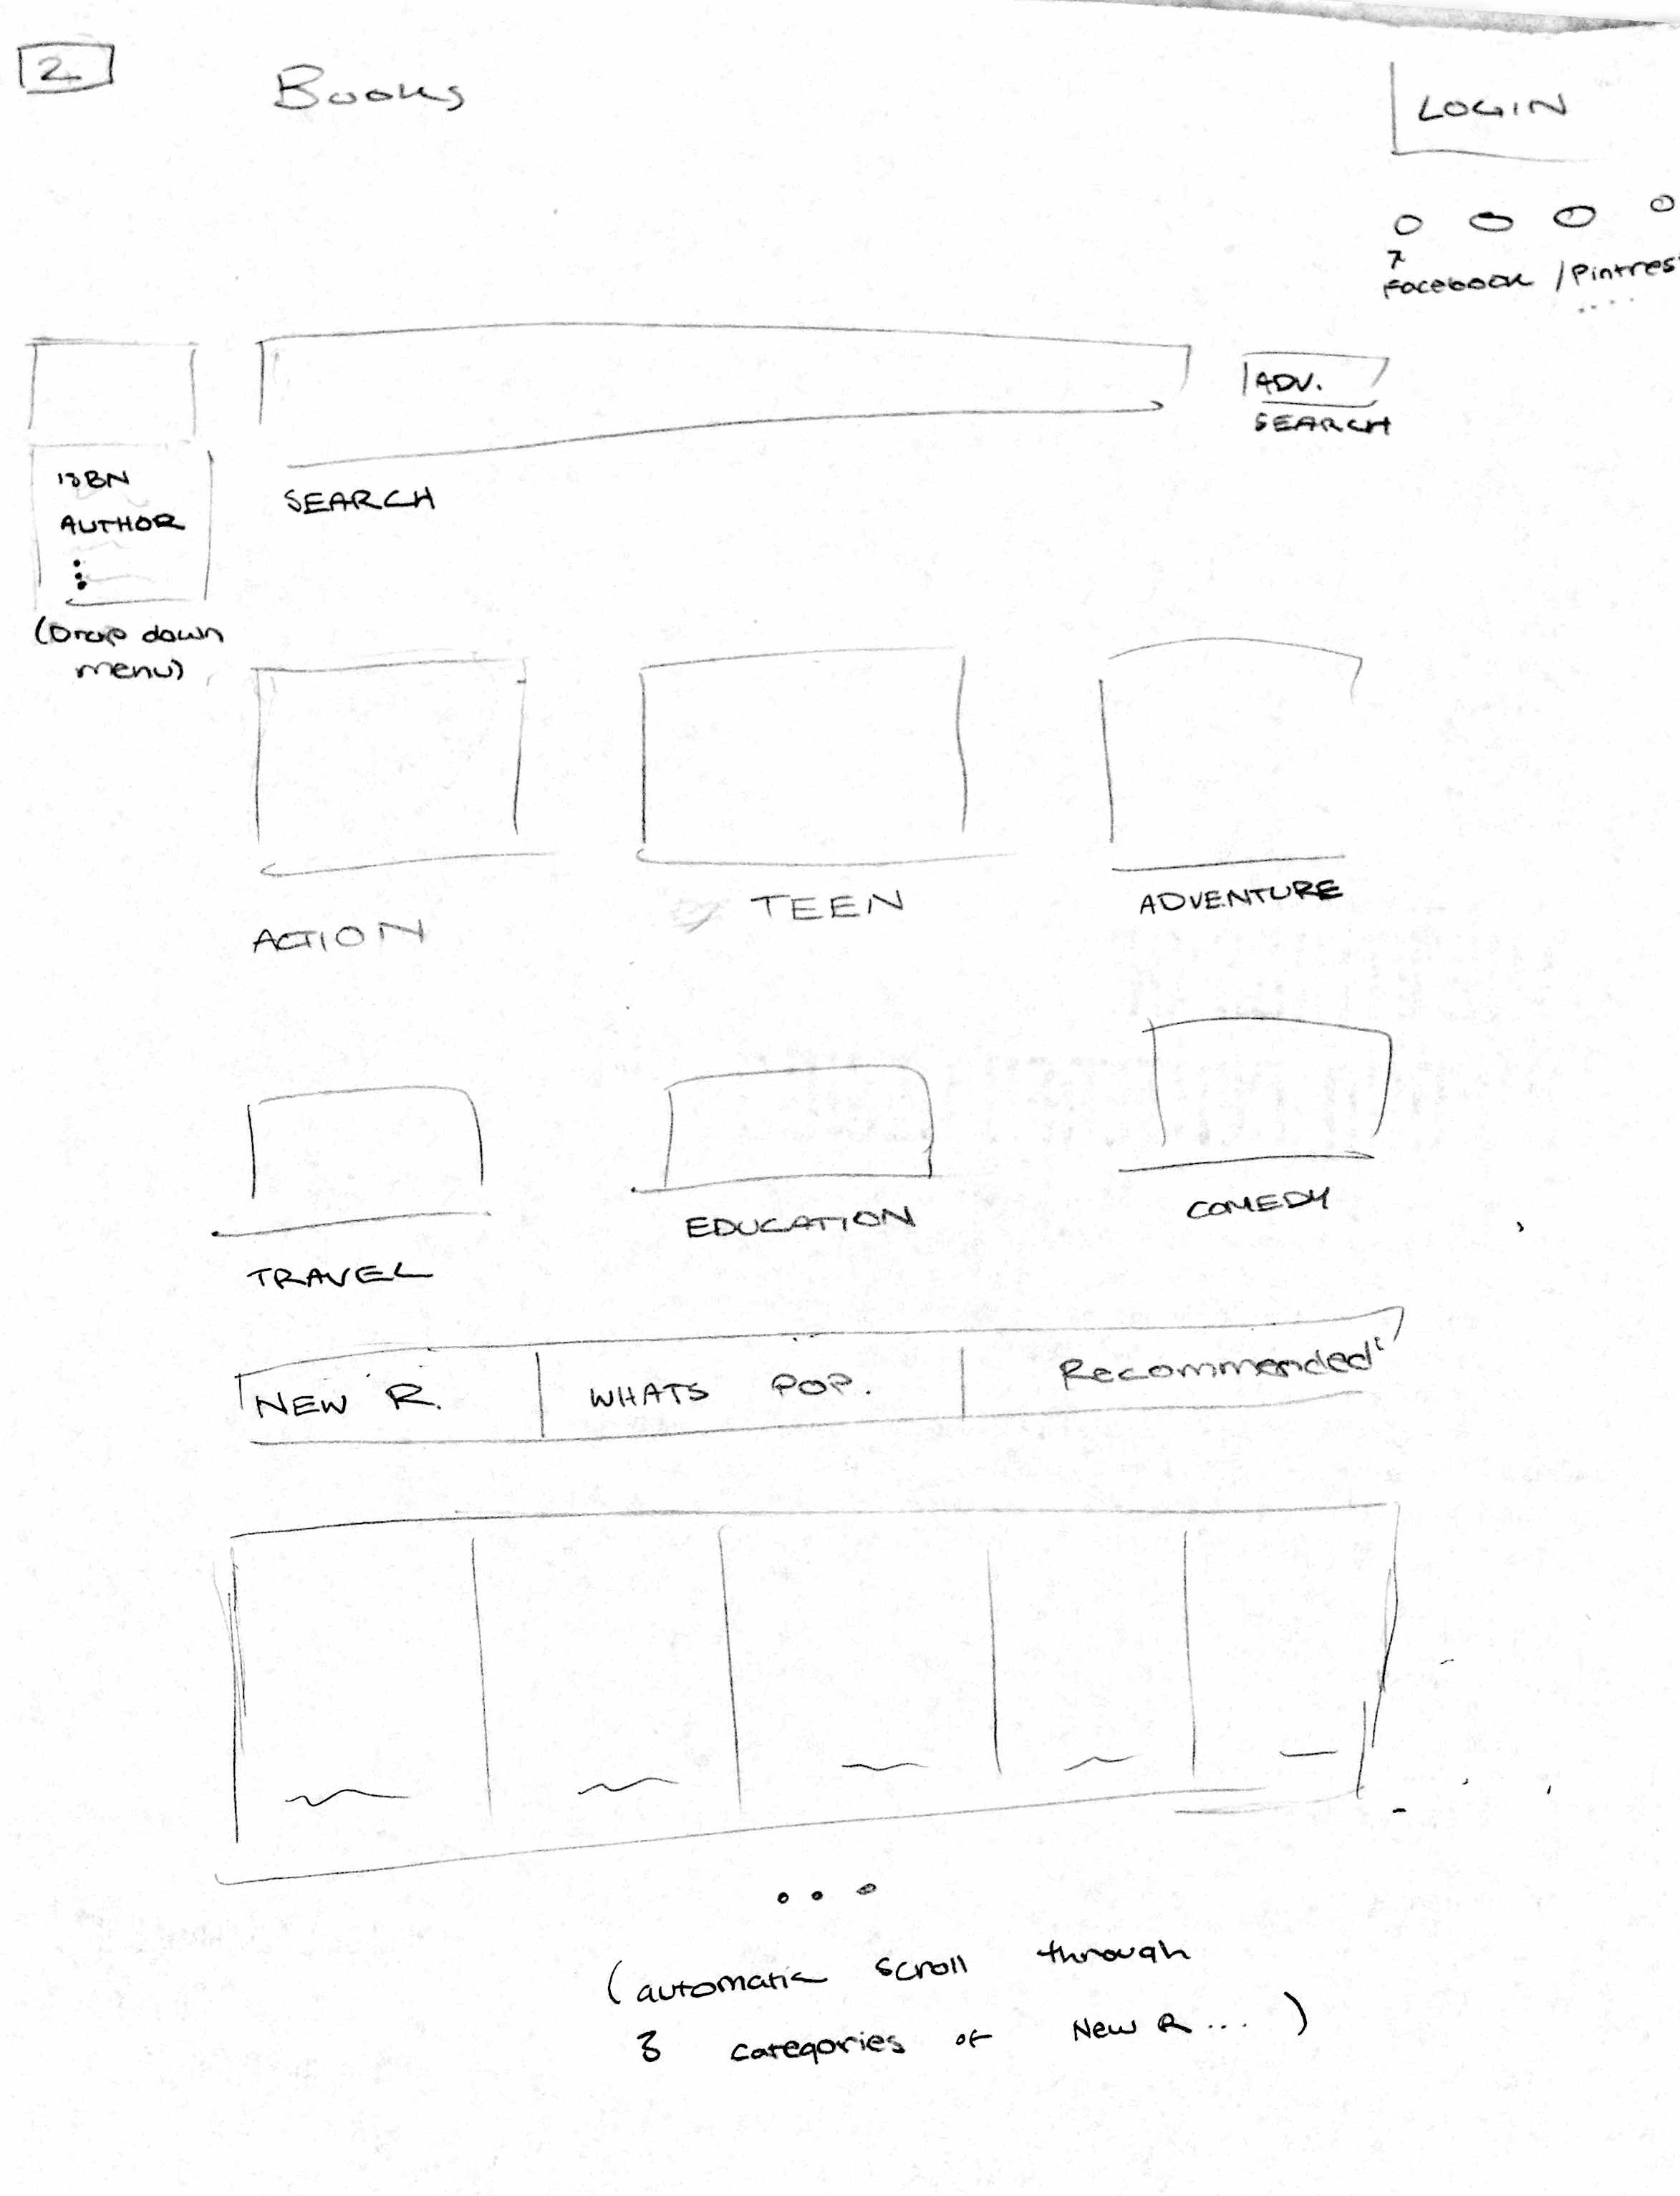 2
Books
LOGIN
Facebook / Pintres
ADV.
SEARCH
ISBN
AUTHOR
SEARCH
(Drop down
menu)
ACTION
TEEN
ADVENTURE
TRAVEL
EDUCATION
COMEDY
NEW R.
WHATS POP.
Recommended
(automatic scroll through
3 categories of New R...)